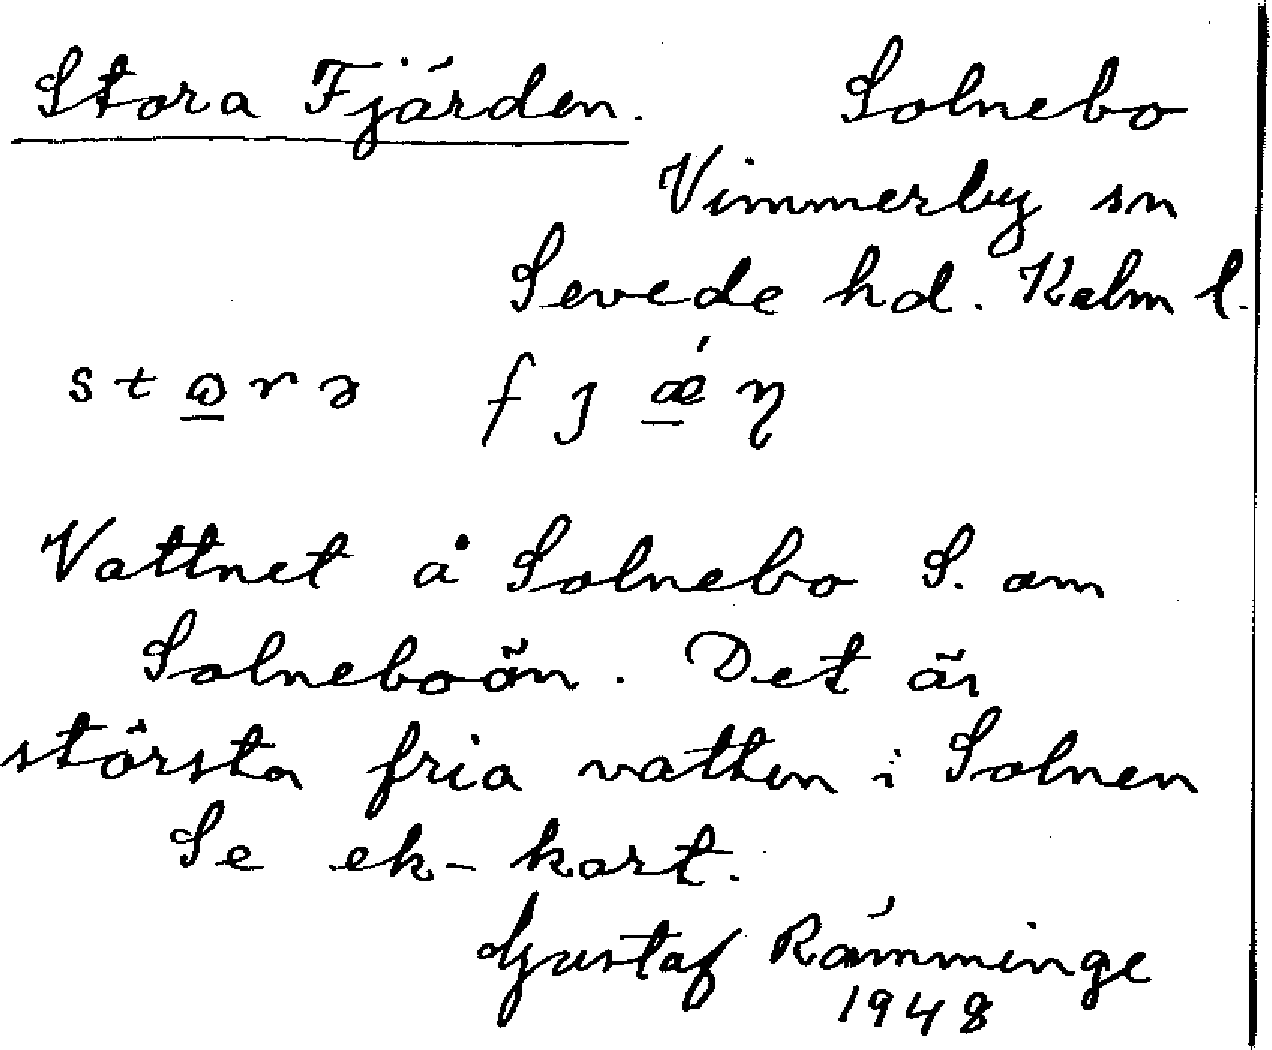 Stora Fjärden. Solnebo
Vimmerby sn
Sevede hd. Kalm l.
Vattnet å Solnebo S. om
Solneboön. Det är
största fria vatten i Solnen
Se ek-kart.
Gustaf Rämminge
1948